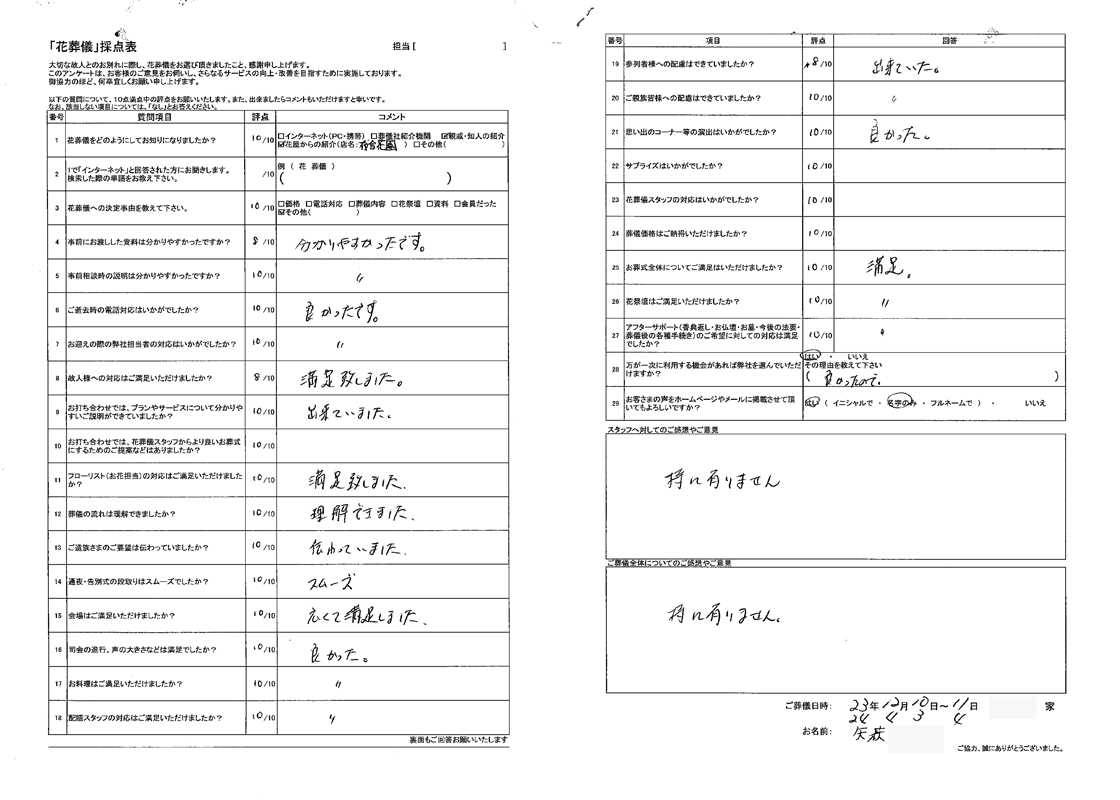 「花葬儀」採点表
担当 [ ]
大切な故人とのお別れに際し、花葬儀をお選び頂きましたこと、感謝申し上げます。
このアンケートは、お客様のご意見をお伺いし、さらなるサービスの向上・改善を目指すために実施しております。
御協力のほど、何卒宜しくお願い申し上げます。
以下の質問について、10点満点中の評点をお願いいたします。また、出来ましたらコメントもいただけますと幸いです。
なお、該当しない項目については、「なし」とお答えください。
番号 質問項目 評点 コメント
1 花葬儀をどのようにしてお知りになりましたか？ 10/10 □インターネット(PC・携帯) □葬儀社紹介機関 ☑親戚・知人の紹介
☑花屋からの紹介(店名: ) □その他( )
2 1で「インターネット」と回答された方にお聞きします。
検索した際の単語をお教え下さい。 /10 例 ( 花 葬儀 )
( )
3 花葬儀への決定事由を教えて下さい。 10/10 □価格 □電話対応 □葬儀内容 □花祭壇 □資料 □会員だった
☑その他( )
4 事前にお渡しした資料は分かりやすかったですか？ 8/10 分かりやすかったです。
5 事前相談時の説明は分かりやすかったですか？ 10/10 〃
6 ご逝去時の電話対応はいかがでしたか？ 10/10 良かったです。
7 お迎えの際の弊社担当者の対応はいかがでしたか？ 10/10 〃
8 故人様への対応はご満足いただけましたか？ 8/10 満足致しました。
9 お打ち合わせでは、プランやサービスについて分かりや
すいご説明ができていましたか？ 10/10 出来ていました。
10 お打ち合わせでは、花葬儀スタッフからより良いお葬式
にするためのご提案などはありましたか？ 10/10
11 フローリスト(お花担当)の対応はご満足いただけました
か？ 10/10 満足致しました.
12 葬儀の流れは理解できましたか？ 10/10 理解できました.
13 ご遺族さまのご要望は伝わっていましたか？ 10/10 伝わっていました.
14 通夜・告別式の段取りはスムーズでしたか？ 10/10 スムーズ
15 会場はご満足いただけましたか？ 10/10 広くて満足しました.
16 司会の進行、声の大きさなどは満足でしたか？ 10/10 良かった。
17 お料理はご満足いただけましたか？ 10/10 〃
18 配膳スタッフの対応はご満足いただけましたか？ 10/10 〃
裏面もご回答お願いいたします
番号 項目 評点 回答
19 参列者様への配慮はできていましたか？ 8/10 出来ていた。
20 ご親族皆様への配慮はできていましたか？ 10/10 〃
21 思い出のコーナー等の演出はいかがでしたか？ 10/10 良かった。
22 サプライズはいかがでしたか？ 10/10
23 花葬儀スタッフの対応はいかがでしたか？ 10/10
24 葬儀価格はご納得いただけましたか？ 10/10
25 お葬式全体についてご満足はいただけましたか？ 10/10 満足。
26 花祭壇はご満足いただけましたか？ 10/10 〃
27 アフターサポート(香典返し・お仏壇・お墓・今後の法要・
葬儀後の各種手続き)のご希望に対しての対応は満足
でしたか？ 10/10 〃
28 万が一次に利用する機会があれば弊社を選んでいただ
けますか？ はい ・ いいえ
その理由を教えて下さい
( 良かったので. )
29 お客さまの声をホームページやメールに掲載させて頂
いてもよろしいですか？ はい ( イニシャルで ・ 名字のみ ・ フルネームで ) ・ いいえ
スタッフへ対してのご感想やご意見
特に有りません
ご葬儀全体についてのご感想やご意見
特に有りません.
ご葬儀日時: 23年12月10日～11日 家
24 4 3 4
お名前: 矢萩
ご協力、誠にありがとうございました。